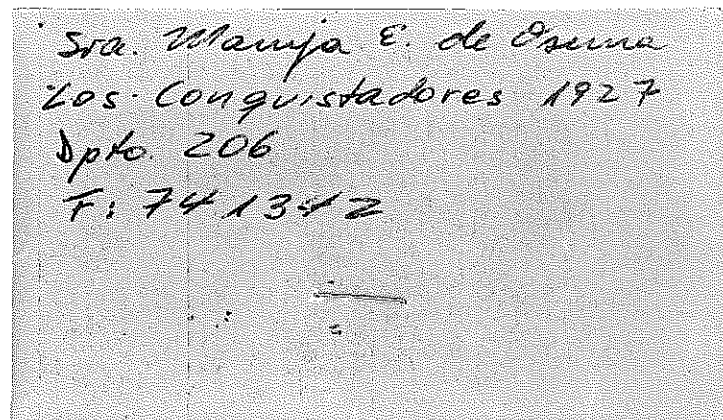 Sra. Maruja E. de Osuna
Los Conquistadores 1927
Dpto. 206
F: 74 13